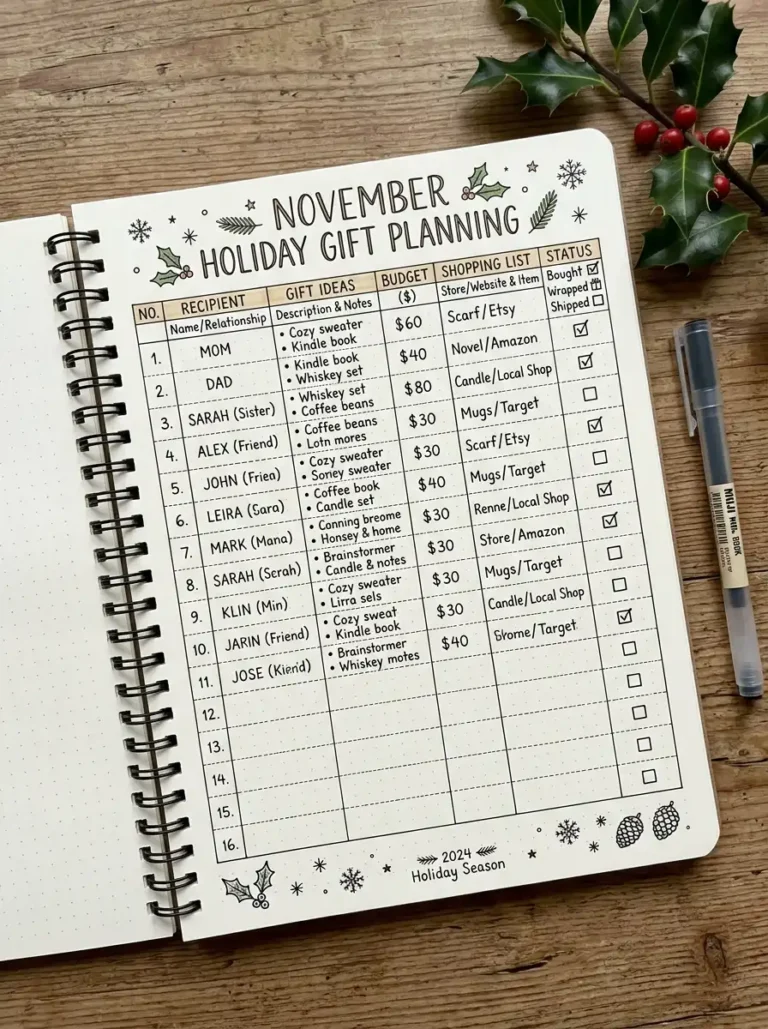 NOVEMBER
HOLIDAY GIFT PLANNING
NO. RECIPIENT GIFT IDEAS BUDGET SHOPPING LIST STATUS
Name/Relationship Description & Notes ($) Store/Website & Item Bought
Wrapped
Shipped
1. MOM • Cozy sweater $60 Scarf/Etsy
• Kindle book
2. DAD • Kindle book $40 Novel/Amazon
• Whiskey set
3. SARAH (Sister) • Whiskey set $80 Candle/Local Shop
• Coffee beans
4. ALEX (Friend) • Coffee beans $30 Mugs/Target
• Lotn mores
5. JOHN (Friea) • Cozy sweater $30 Scarf/Etsy
• Soriey sweater
6. LEIRA (Sara) • Coffee book $40 Mugs/Target
• Candle set
7. MARK (Mana) • Canning breome $30 Renne/Local Shop
• Honsey & home
8. SARAH (Serah) • Brainstormer $30 Store/Amazon
• Candle & notes
9. KLIN (Min) • Cozy sweater $30 Mugs/Target
• Lirra sels
10. JARIN (Friend) • Cozy sweat $30 Candle/Local Shop
• Kindle book
11. JOSE • Brainstormer $40 /Target
• Whiskey motes
12.
13.
14.
15.
16.
2024
Holiday Season
MUJI
BOOK